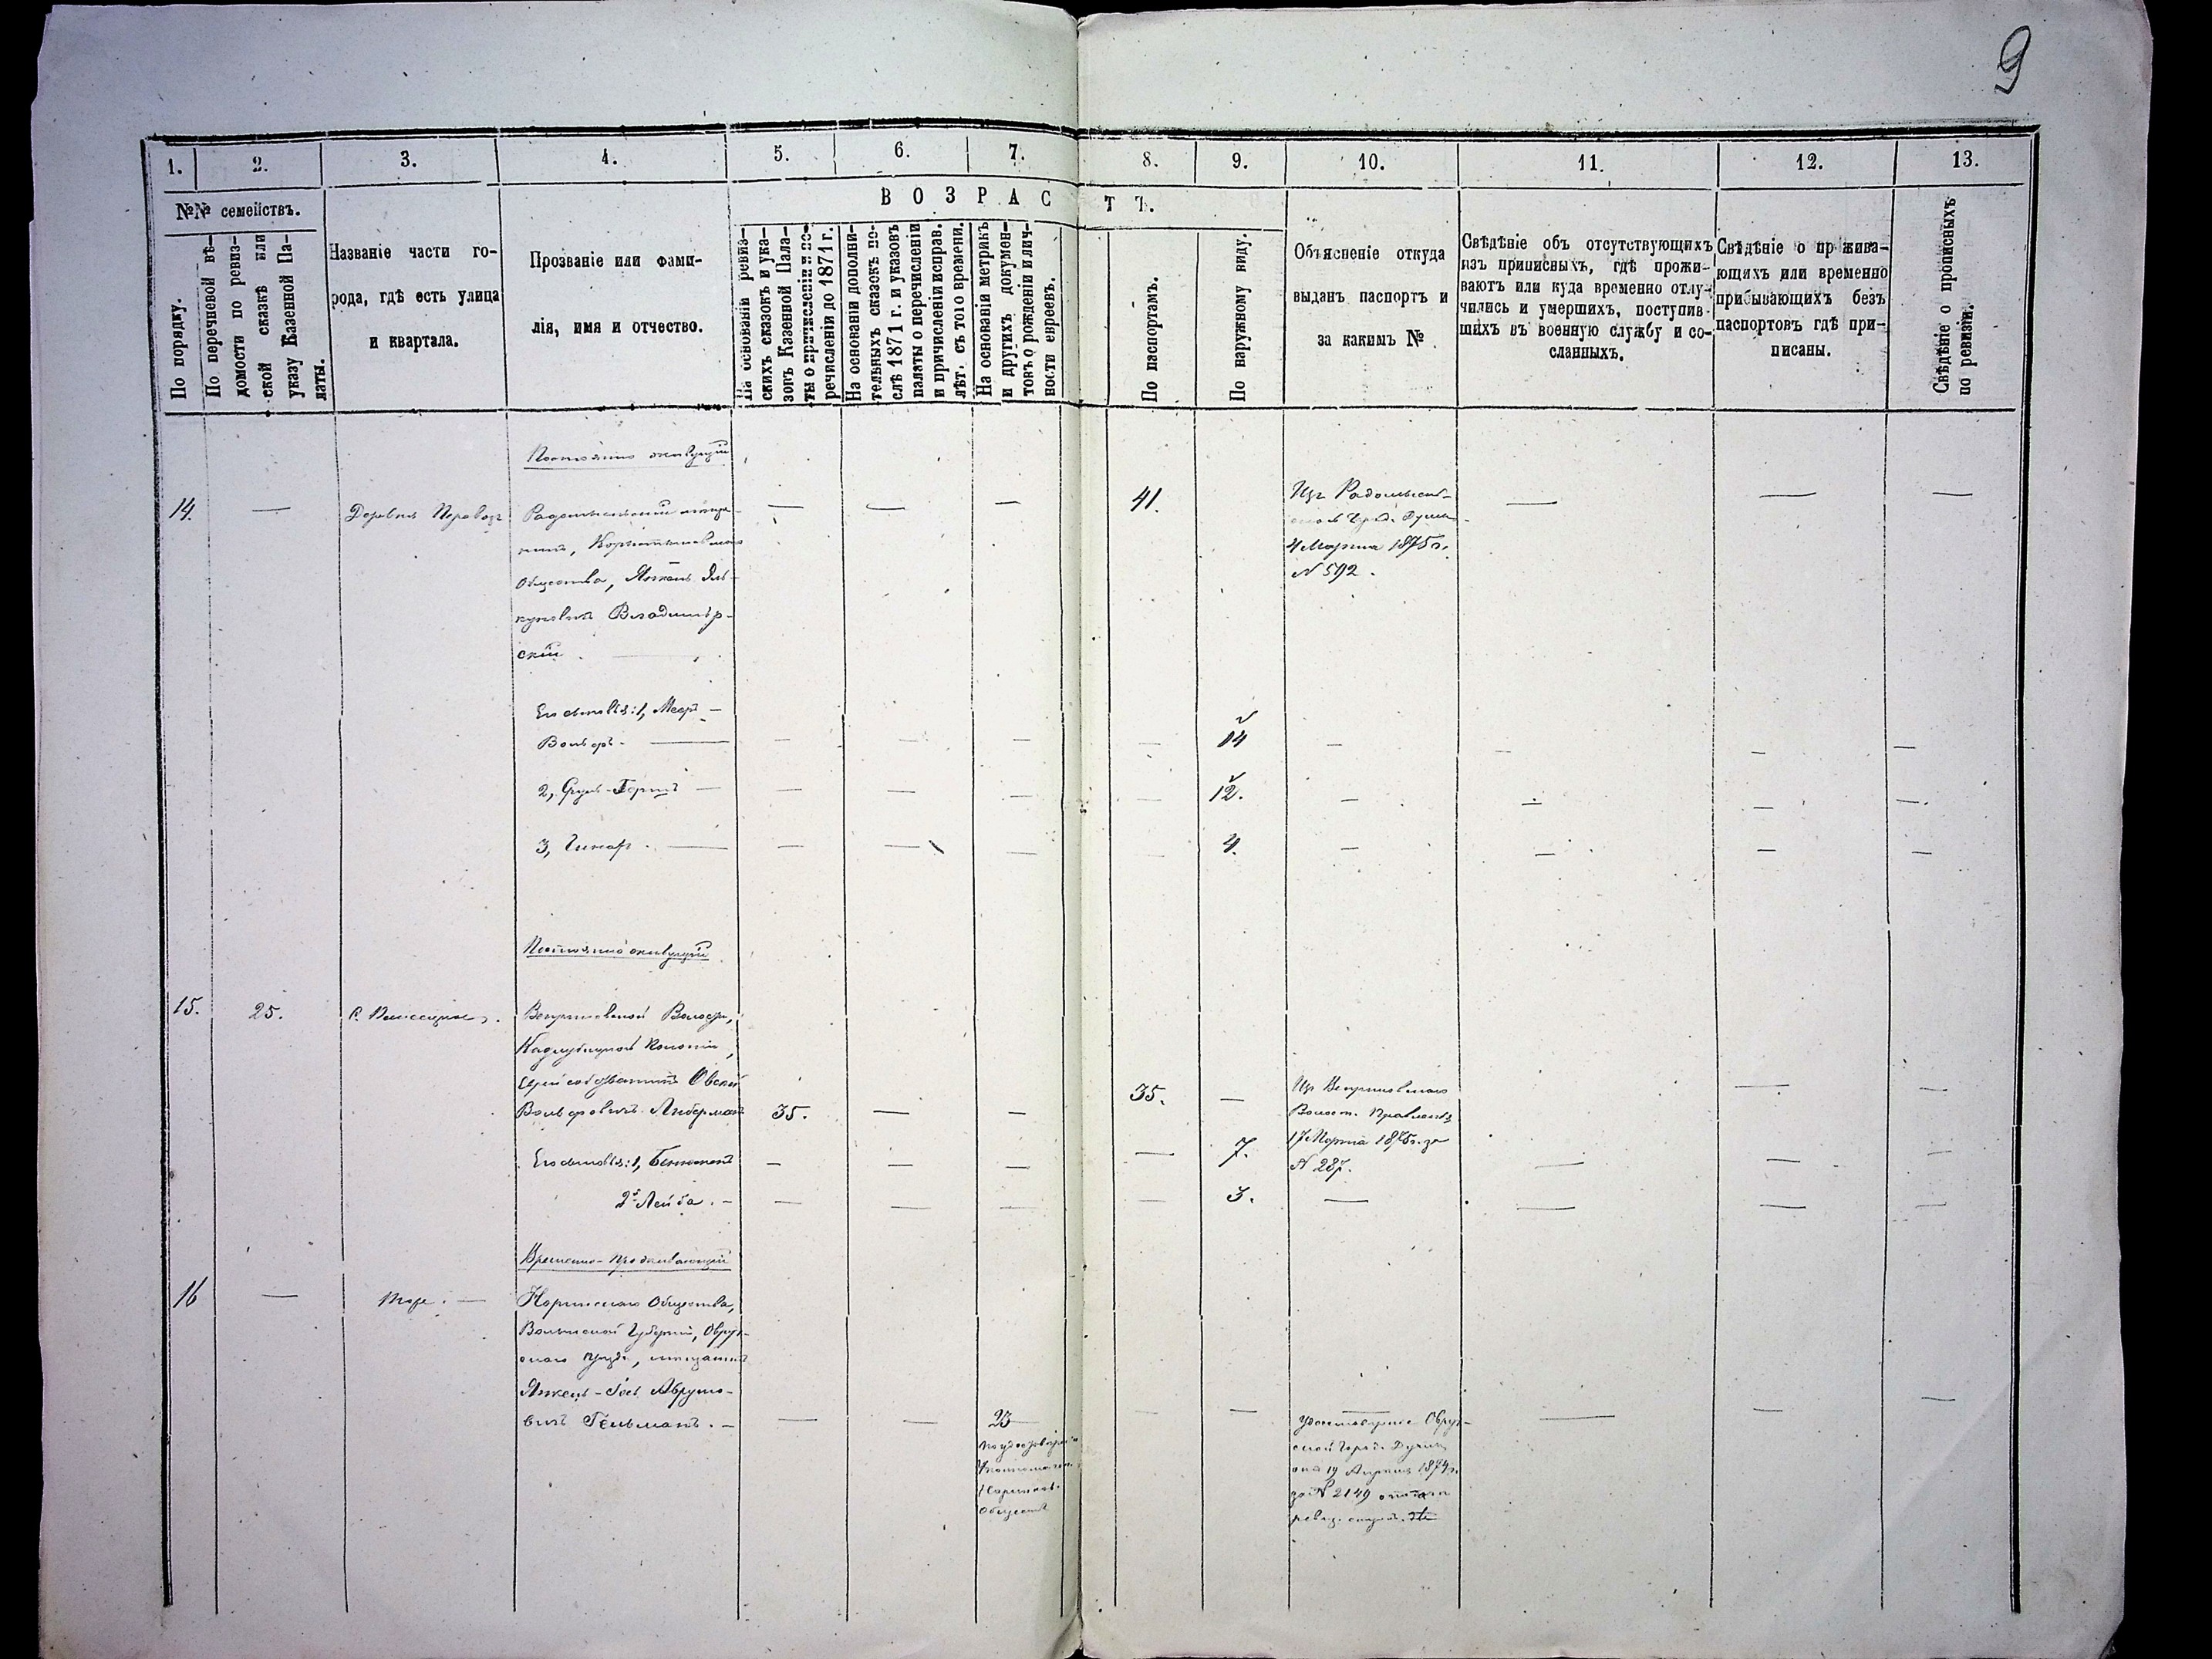 9
1.
2.
3.
4.
5.
6.
7.
8.
9.
10.
11.
12.
13.
№№ семействъ.
По порядку.
По перечневой вѣ-
домости по ревиз-
ской сказкѣ или
указу Казенной Па-
латы.
Названіе части го-
рода, гдѣ есть улица
и квартала.
Прозваніе или фами-
лія, имя и отчество.
ВОЗРАСТЪ.
На основаніи ревиз-
скихъ сказокъ и ука-
зовъ Казенной Пала-
ты о причисленіи и пе-
речисленіи до 1871 г.
На основаніи дополни-
тельныхъ сказокъ по-
слѣ 1871 г. и указовъ
палаты о перечисленіи
и причисленіи исправ.
лѣт. съ того времени.
На основаніи метрикъ
и другихъ докумен-
товъ о рожденіи и лич-
ности евреевъ.
По паспортамъ.
По наружному виду.
Объясненіе откуда
выданъ паспортъ и
за какимъ №
Свѣдѣніе объ отсутствующихъ
изъ приписныхъ, гдѣ прожи-
ваютъ или куда временно отлу-
чились и умершихъ, поступив-
шихъ въ военную службу и со-
сланныхъ.
Свѣдѣніе о прожива-
ющихъ или временно
прибывающихъ безъ
паспортовъ гдѣ при-
писаны.
Свѣдѣніе о прописныхъ
по ревизіи.
Постоянно живущій
14. — Деревня Перевозъ
Радомысльскій мѣща-
нинъ,
Общества, Янкель
Владимір-
скій. —
— — — 41.
Изъ Радомысль-
ской Город. Думы
4 Марта 1875 г.
№ 592.
— — —
Его сыновья: 1, Меер —
Вольфъ. — — — — — 14 — — — —
2, Сруль-Герш — — — — — 12. — — — —
3, — — — — — 4. — — — —
Постоянно живущій
15. 25. С.
Волости,
Колоніи,
Овсей
Вольфовичъ Либерман 35. — — 35. —
Изъ
Волост. Правленія
17 Марта 1875 г. за
№ 287.
— —
Его сыновья: 1, — — — — 7. — — —
2й Лейба. — — — — — 3. — — — —
Временно-проживающій
16 — Тоже. —
Норинскаго Общества,
Волынской Губерніи, Овруч-
скаго уѣзда, мѣщанинъ
Янкель-Іос Абрумо-
вичъ Гельманъ. —
— — 23
Норинск.
Общества
— — —
Овруч-
ской Город. Думы
отъ 19 Апрѣля 1874 г.
за № 2149
— — —